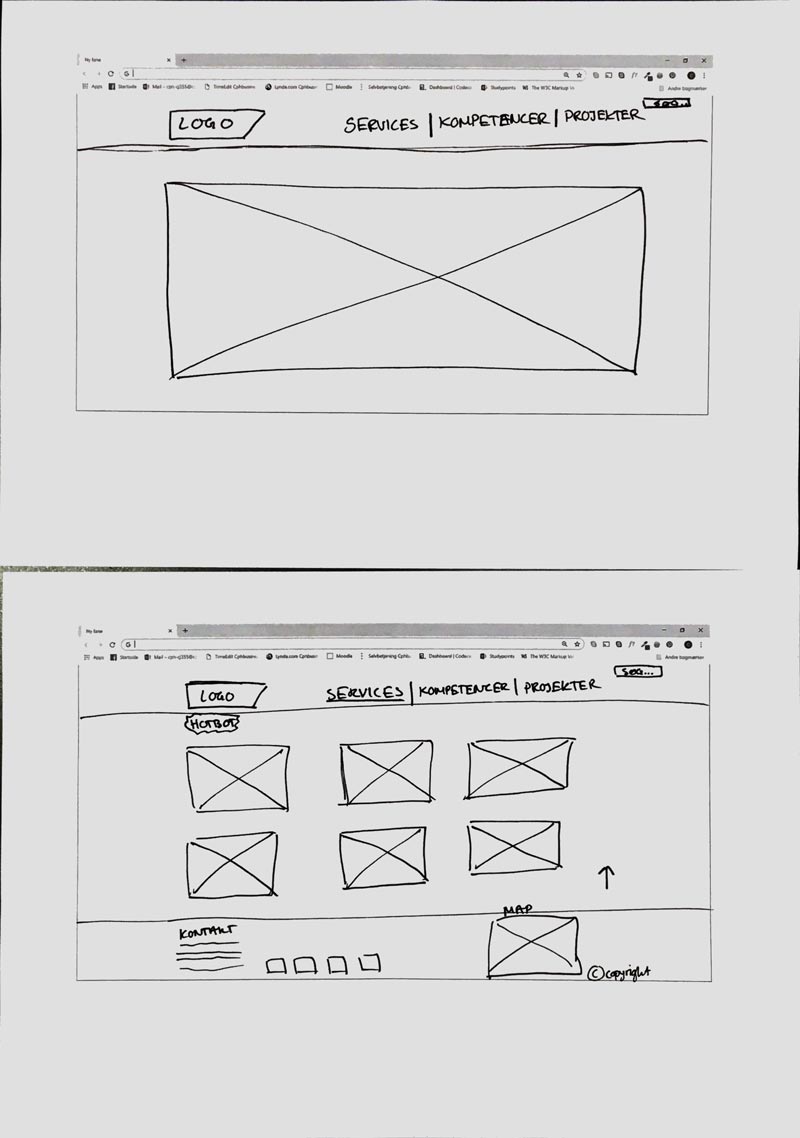 My fane
G
Apps Startside Mail - cph- TimeEdit Cphbusin Lynda.com Cphbusin Moodle Selvbetjening Cphb Dashboard | Codeca Studypoints The W3C Markup Andre bogmærker
LOGO SERVICES | KOMPETENCER | PROJEKTER SØG...
My fane
G
Apps Startside Mail - cph- TimeEdit Cphbusin Lynda.com Cphbusin Moodle Selvbetjening Cphb Dashboard | Codeca Studypoints The W3C Markup Andre bogmærker
SØG...
LOGO SERVICES | KOMPETENCER | PROJEKTER
HOTBOT
MAP
KONTAKT
© copyright